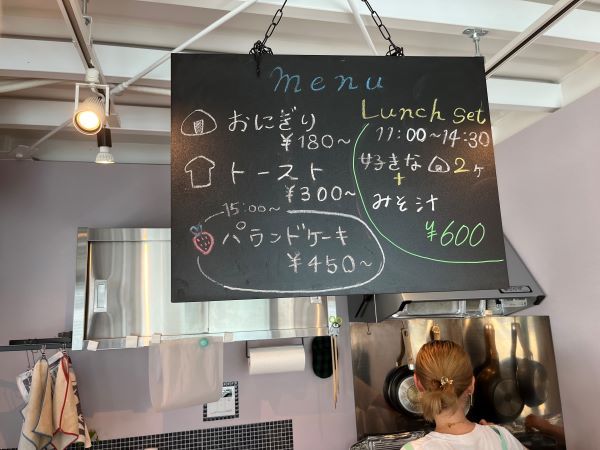 menu
おにぎり
¥180〜
トースト
¥300〜
15:00〜
パウンドケーキ
¥450〜
Lunch set
11:00〜14:30
好きな 2ヶ
+
みそ汁
¥600